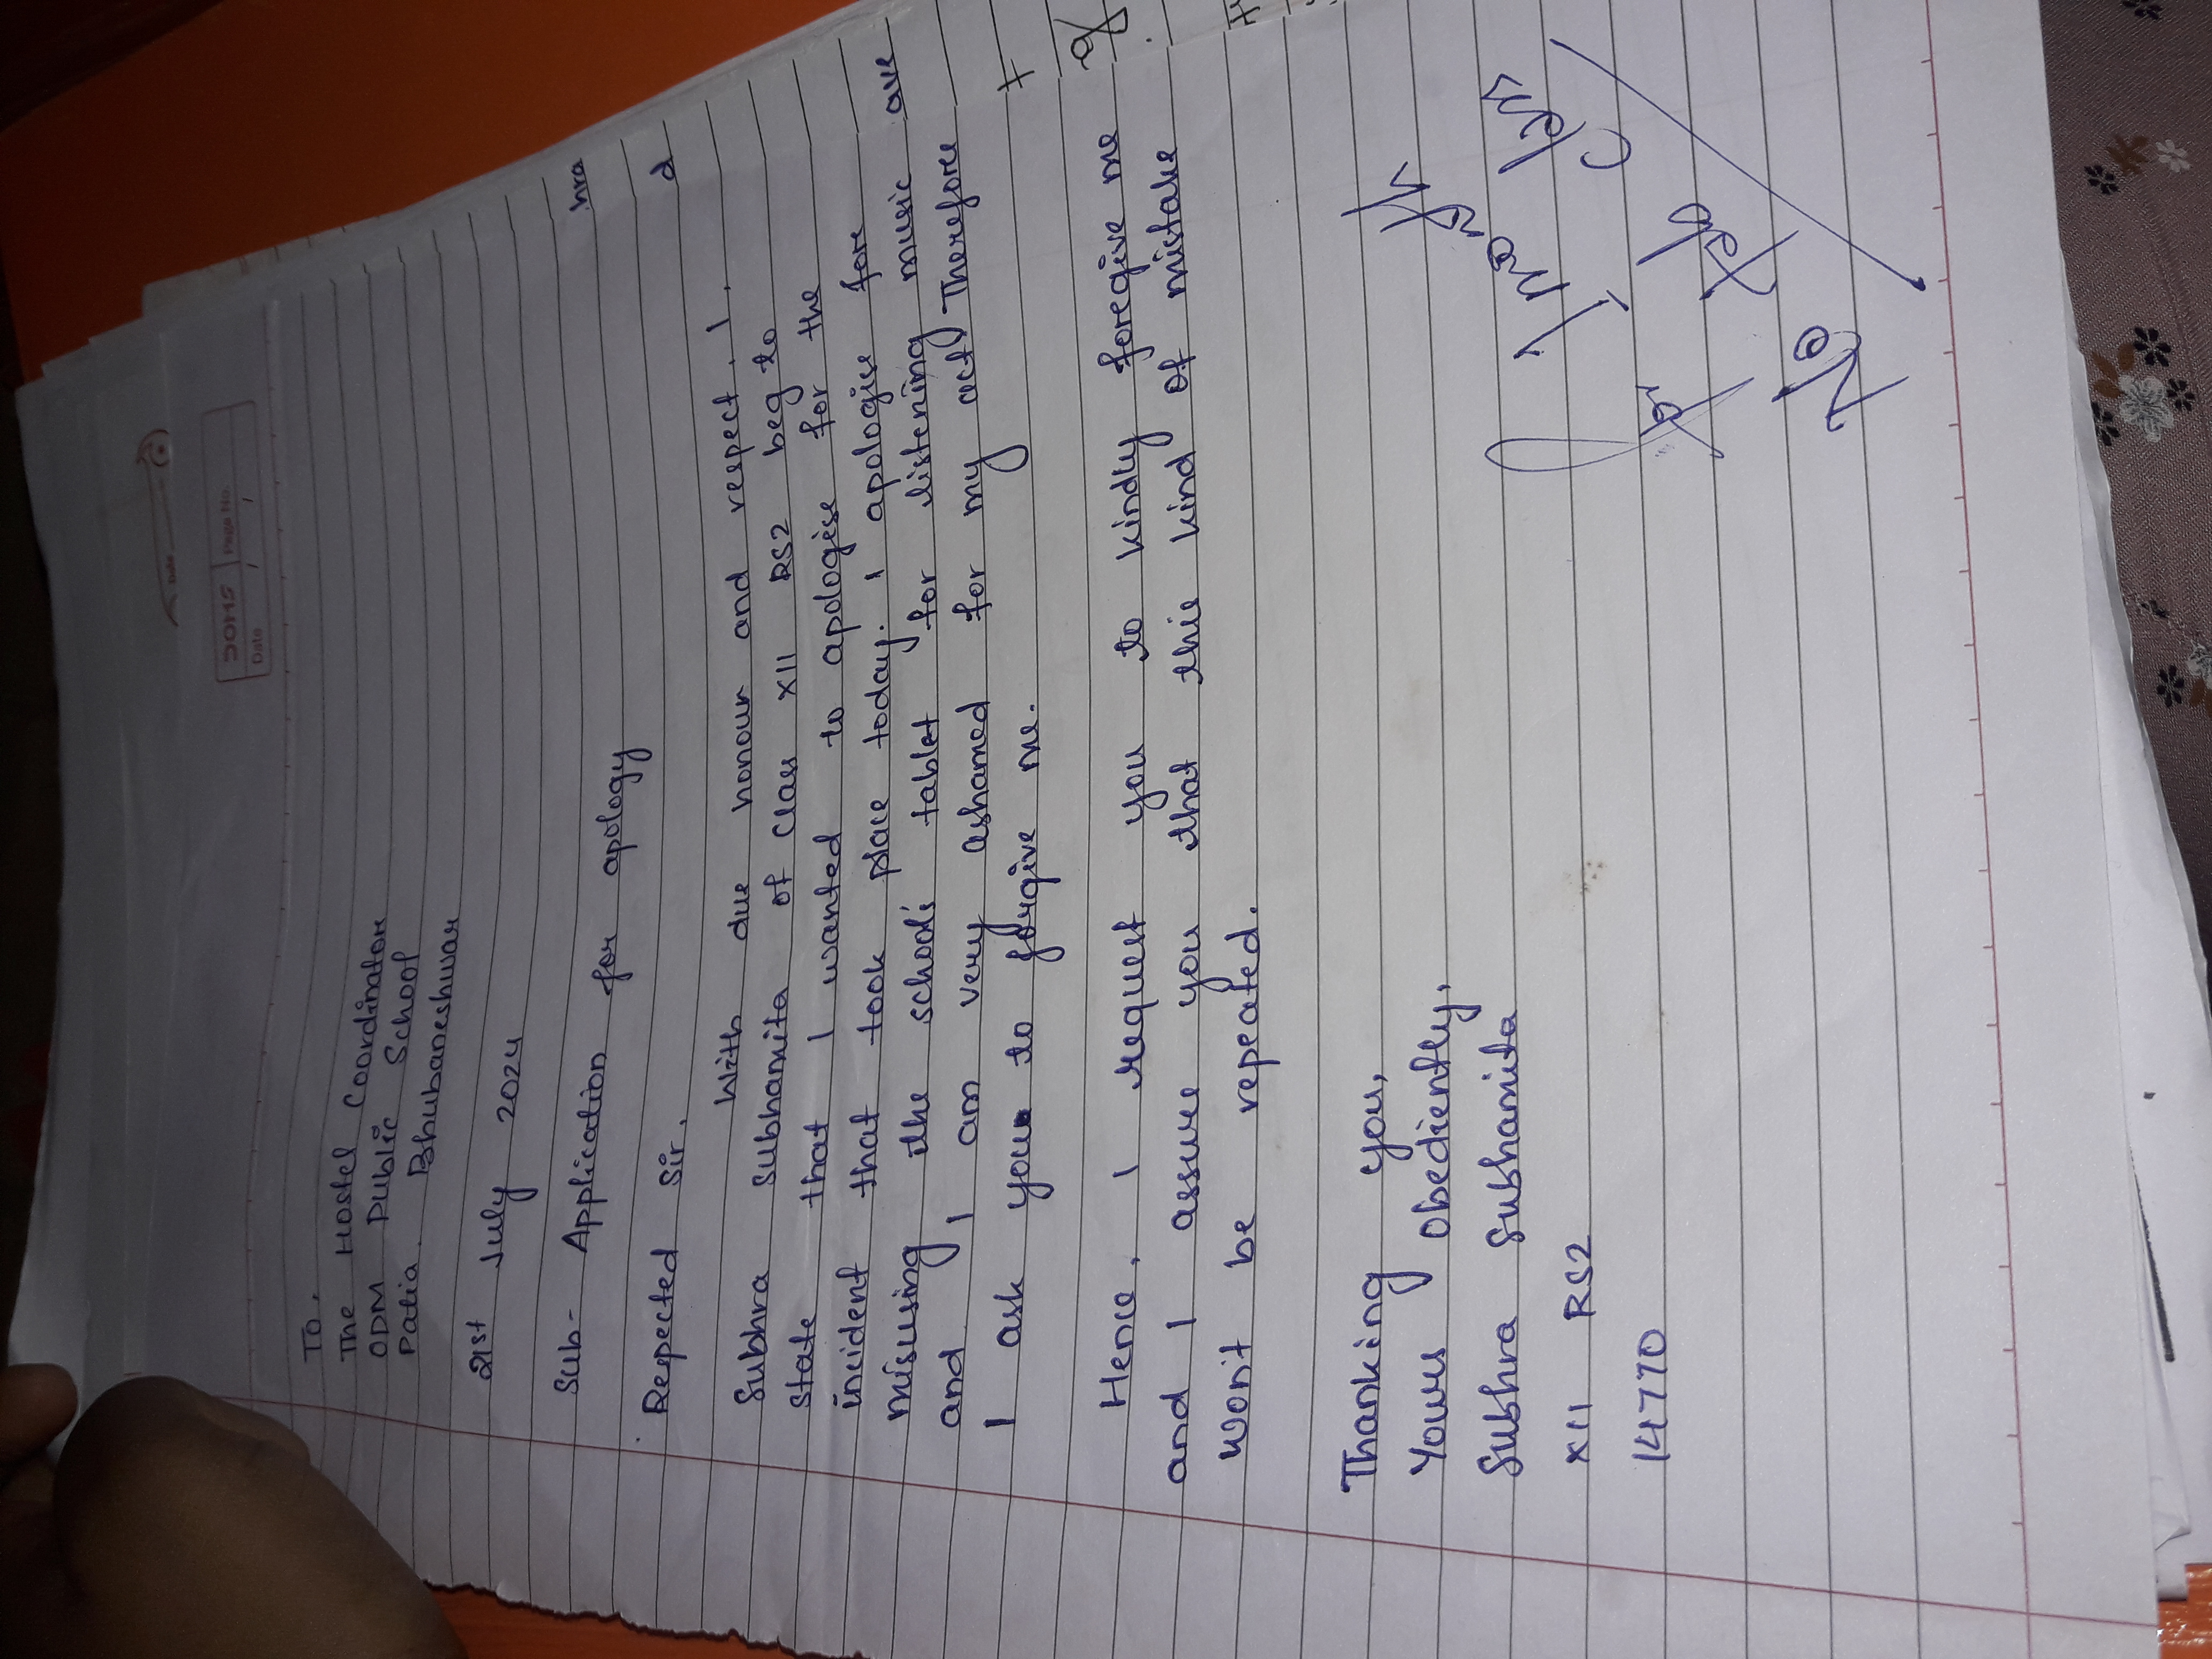 DOMS Page No.
Date / /
To,
The Hostel Coordinator
ODM Public School
Patia, Bhubaneshwar
21st July 2024
Sub- Application for apology
Respected Sir,
With due honour and respect, I,
Subhra Subhamita of Class XII RS2 beg to
state that I wanted to apologise for the
incident that took place today. I apologise fore
misusing the school's tablet for listening music
and I am very ashamed for my act) Therefore
I ask you to forgive me.
Hence, I request you to kindly foregive me
and I assure you that this kind of mistake
won't be repeated.
Thanking you,
Yours Obediently,
Subhra Subhamita
XII RS2
14770
hra
d
are